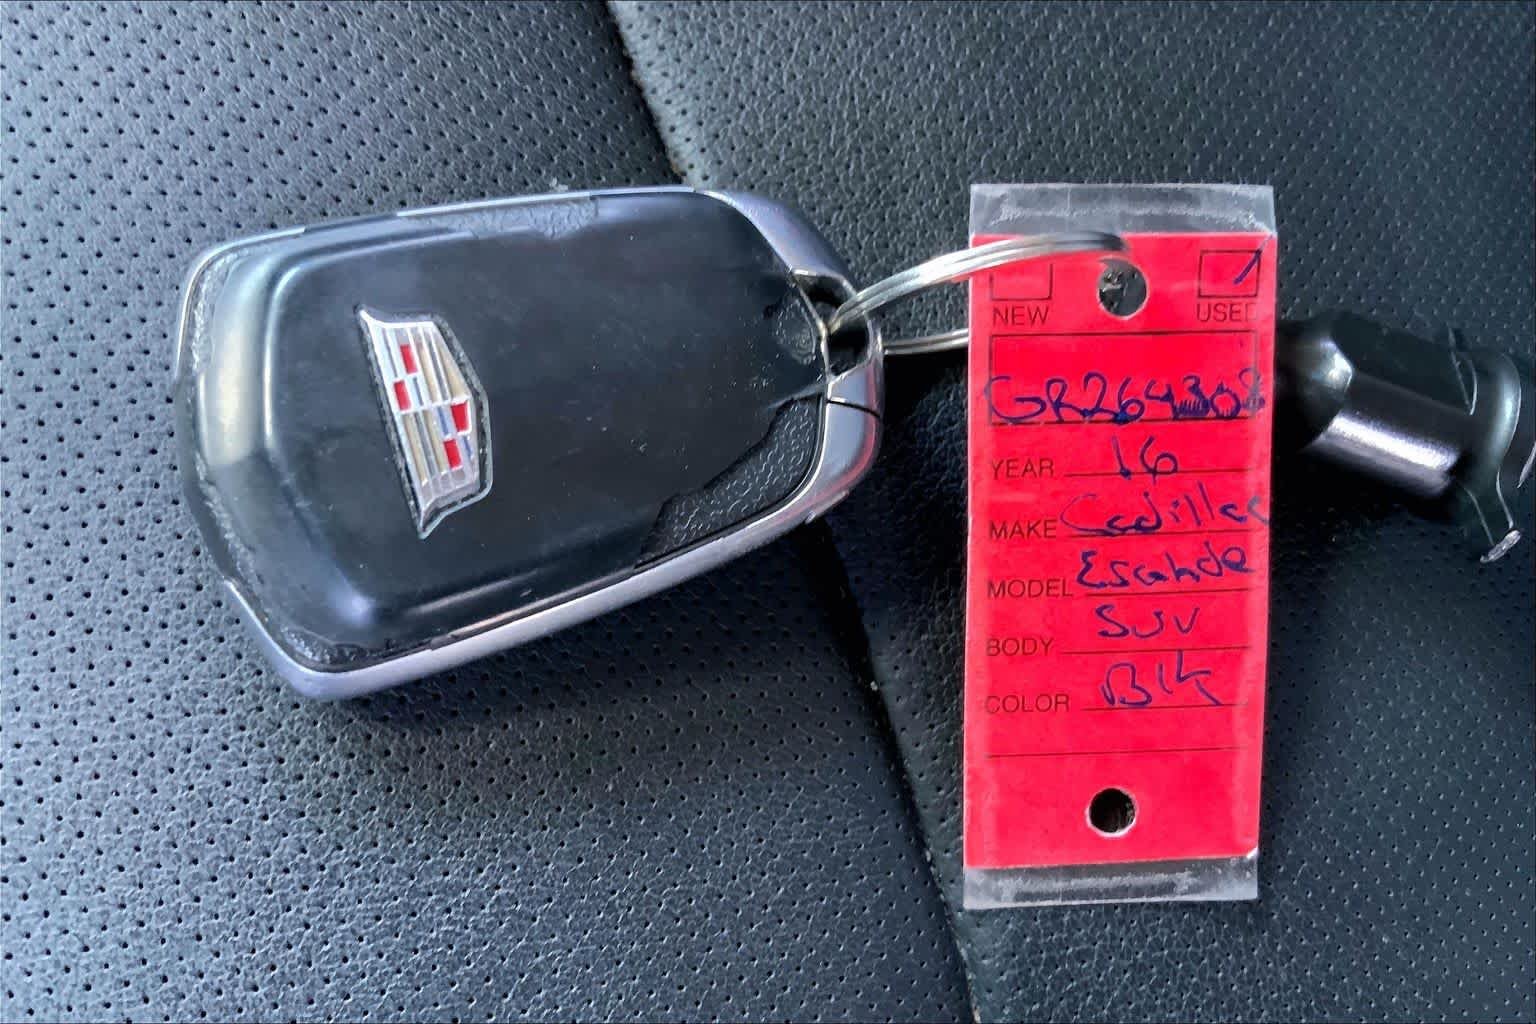 NEW USED
GR264308
YEAR 16
MAKE Cadillac
MODEL Escalade
BODY SUV
COLOR Blk